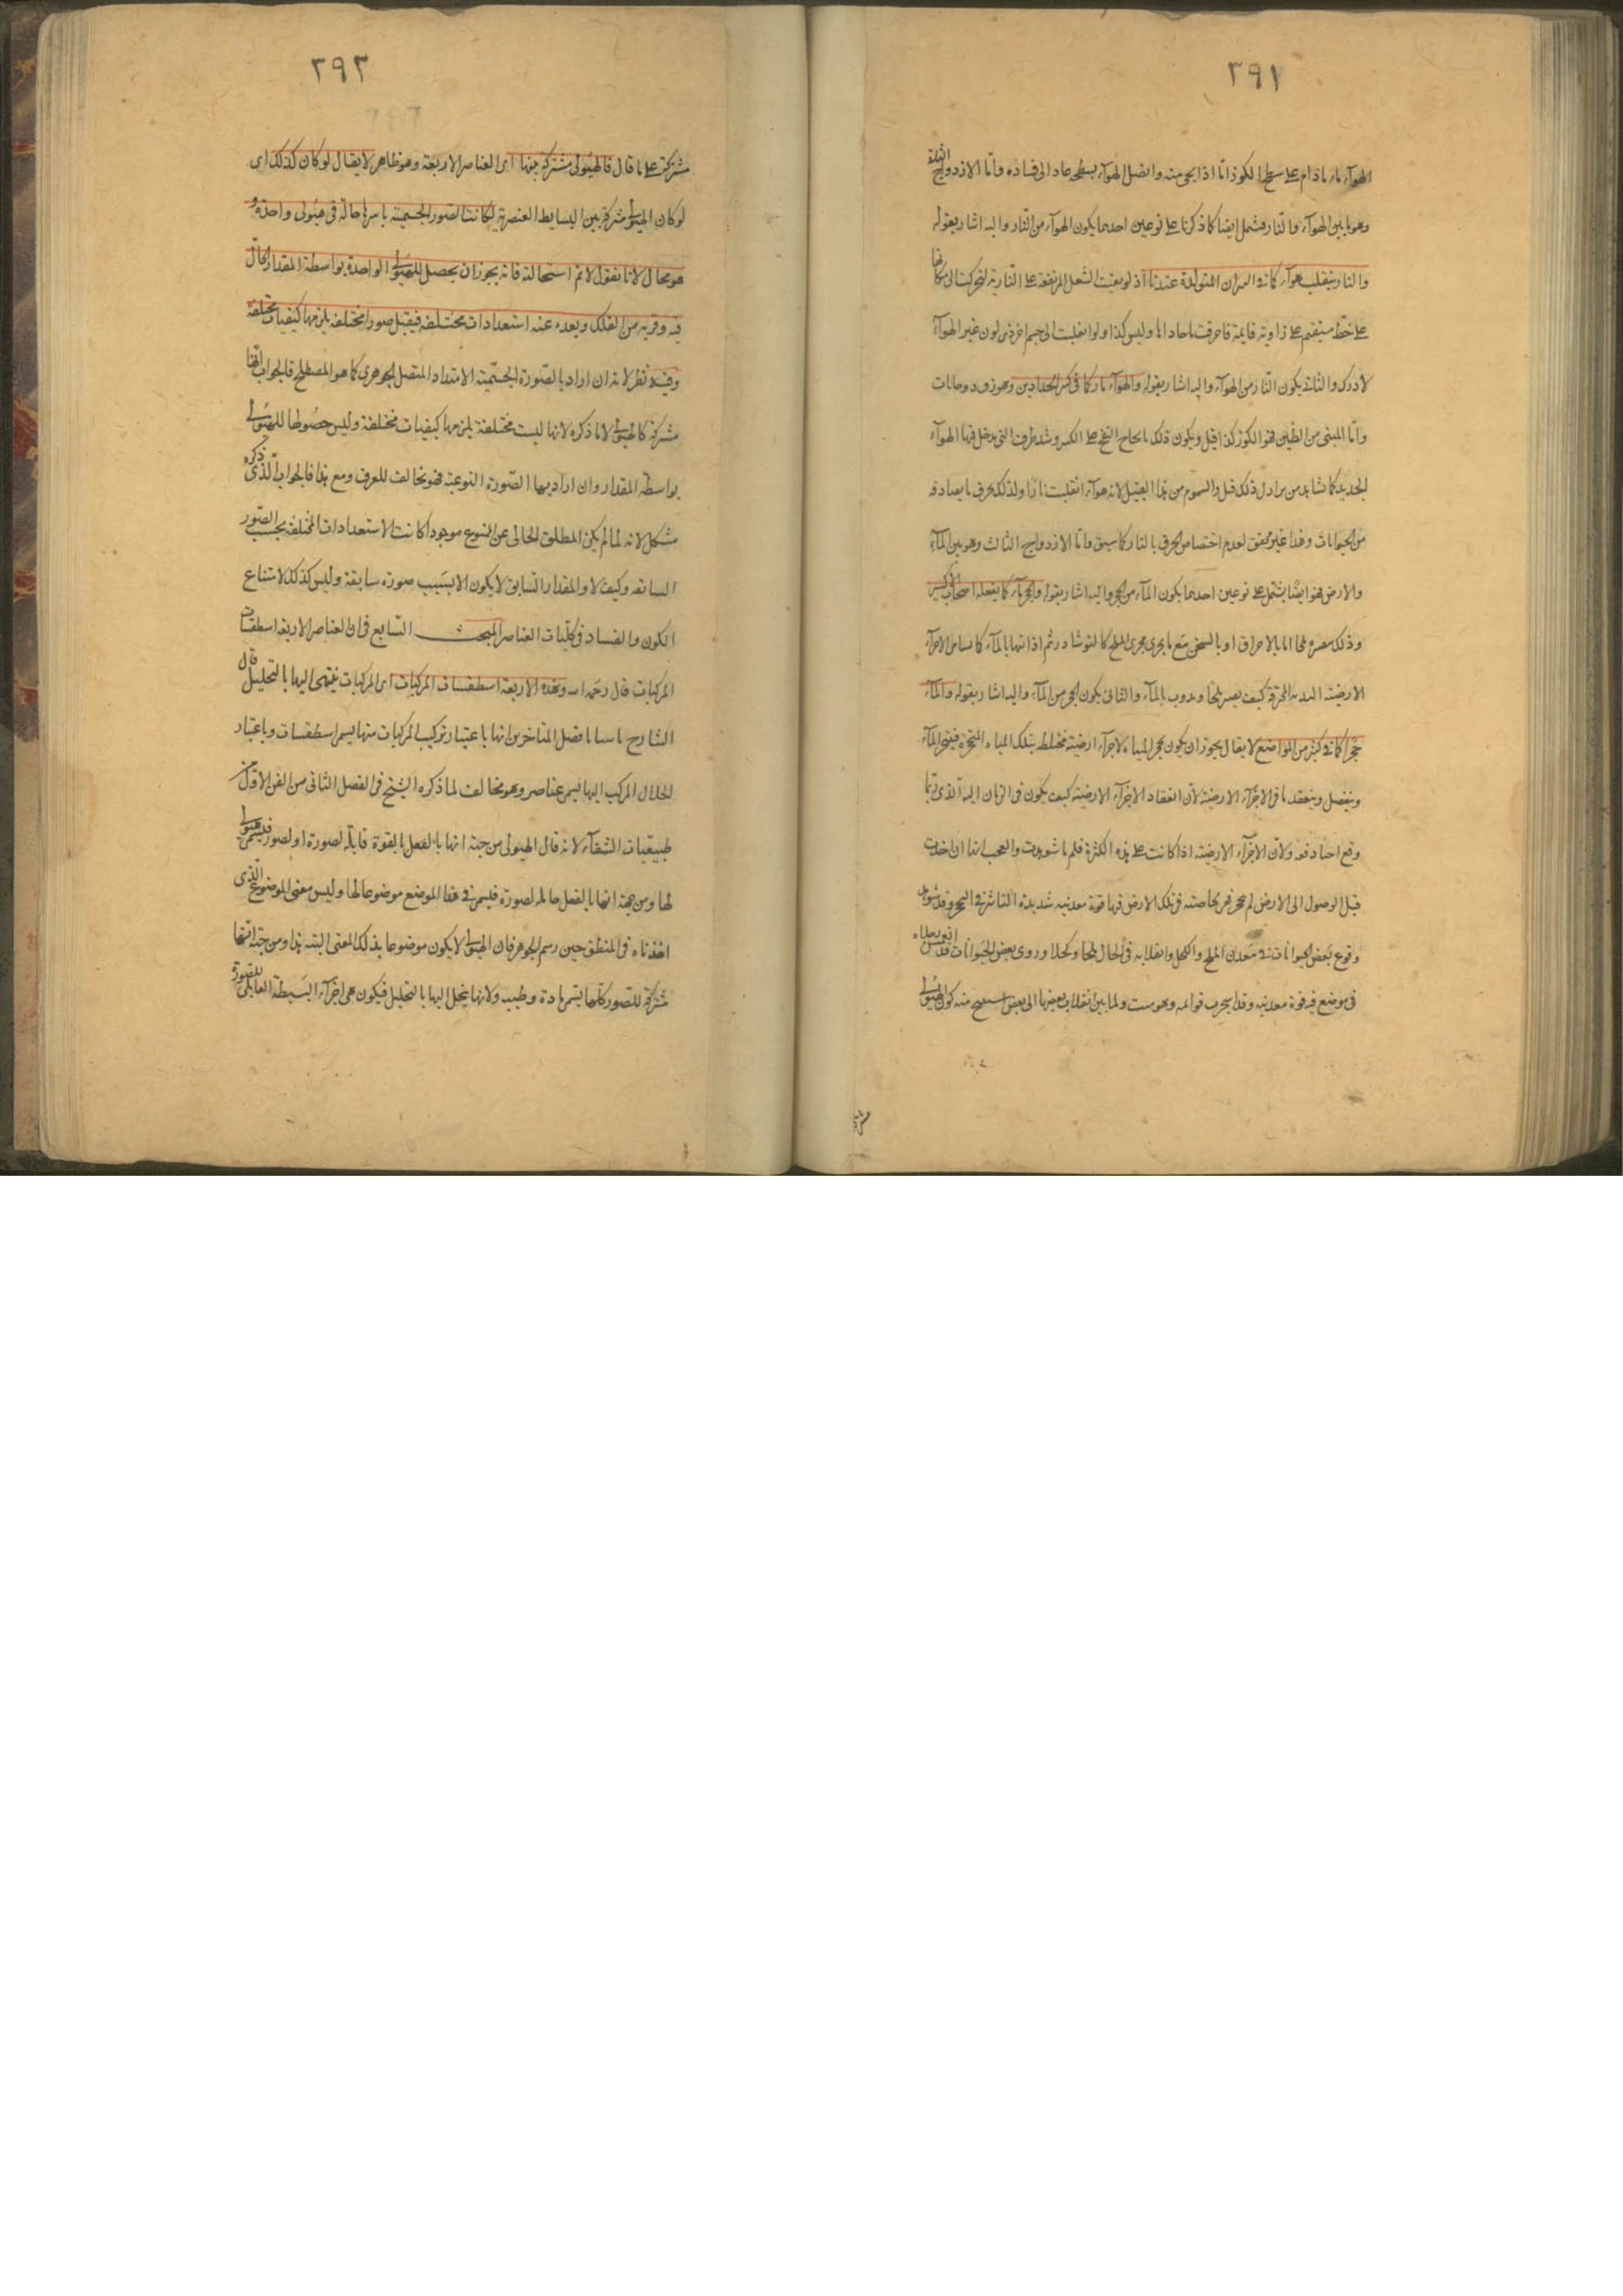 ٢٩١
الهوآء ماء مادام على سطح الكوز اما اذا نحى منه واتصل الهوآء بسطحه عاد الى فساده واما الازدواج الثاني
وهو ما بين الهوآء والنار فيشمل ايضا كما ذكرنا على نوعين احدهما يكون الهوآء من النار واليه اشار بقوله
والنار ينقلب هوآء كما في النيران المتولدة عندنا اذ لو بقيت الشعل المرتفعة على النارية لتحركت الى مكانها
على خط مستقيم على زاوية قايمة فاحرقت ما حاذاها وليس كذا ولو انقلبت الى جسم اخر ذي لون غير الهوآء
لادرك والثاني يكون النار من الهوآء واليه اشار بقوله والهوآء نار كما في كير الحدادين وهو زق ذو حافات
واما المبنى من الطين فهو الكور كذا قيل ويكون ذلك بالحاح النفخ على الكير وشد طرق التي يدخل فيها الهوآء
الجديد كما نشاهد من يزاول ذلك قيل والسموم من هذا القبيل لانه هوآء انقلبت نارا ولذلك يحرق ما يصادفه
من الحيوانات وهذا غير محقق لعدم اختصاص الحرق بالنار كما سبق واما الازدواج الثالث وهو بين المآء
والارض فهو ايضا يشتمل على نوعين احدهما يكون المآء من الحجر واليه اشار بقوله والحجر مآء كما يفعله اصحاب الاكسير
وذلك اما بالاحراق او بالسحق مع ما يجري مجرى الملح كالنوشادر ثم اذابتها بالمآء كما الاجزآء
الارضية المحترقة كيف يصير ملحا ويذوب بالمآء والثاني يكون الحجر من المآء واليه اشار بقوله والمآء
حجرا كما في كثير من المواضع لا يقال يجوز ان يكون تحجر المياه لاجزآء ارضية مختلطة بتلك المياه المتحجرة فيتبخر المآء
وينفصل وينعقد ما في الاجزآء الارضية لان انعقاد الاجزآء الارضية كيف يكون في الزمان الذي ربما
وقع احيانا دفعة ولان الاجزآء الارضية اذا كانت على هذه الكثرة فلم ما شوهدت والعجب انها ان اخذت
قبل الوصول الى الارض لم تتحجر فهي بخاصته في تلك الارض فيها قوة معدنية شديدة التاثير في التحجر وقد شوهد
وقوع بعض الحيوانات في معدن الملح والكحل وانقلابه في الحال ملحا وكحلا وروى بعض الحيوانات قد
في موضع فيه قوة معدنية وقد تحجرت قوائمه وهو ميت ولما بين انقلاب بعضها الى بعض منه كون الهيولى
٢٩٢
مشتركة على ما قال فالهيولى مشتركة بينها اى العناصر الاربعة وهو ظاهر لا يقال لو كان كذلك اى
لو كان الهيولى مشتركة بين البسايط العنصرية لكانت الصور الجسمية باسرها حالة في هيولى واحدة و
هو محال لانا نقول لا نم استحالة فانه يجوز ان يحصل للهيولى الواحدة بواسطة المقدار الحال
فيه وقربه من الفلك وبعده عنه استعدادات مختلفة فيقبل صورا مختلفة يلزمها كيفيات مختلفة
وفيه نظر لانه ان اراد بالصورة الجسمية الامتداد المتصل الجوهرى كما هو المصطلح فالجواب انها
مشتركة كالهيولى لا ما ذكره لانها ليست مختلفة يلزمها كيفيات مختلفة وليس حصولها للهيولى
بواسطة المقدار وان اراد بها الصورة النوعية فهو مخالف للعرف ومع هذا فالجواب الذى ذكره
مشكل لانه لما لم يكن المطلق الخالى عن المنوع موجودا كانت الاستعدادات المختلفة بحسب الصور
السابقة وكيف لا والمقدار السابق لا يكون الا بسبب صورة سابقة وليس كذلك لامتناع
الكون والفساد في كليات العناصر المبحث السابع في ان العناصر الاربعة اسطقسات
المركبات قال رحمه الله وهذه الاربعة اسطقسات المركبات اى المركبات ينتهى اليها بالتحليل قال
الشارح افضل المتاخرين انها باعتبار تركيب المركبات منها يسمى اسطقسات وباعتبار
انحلال المركب اليها تسمى عناصر وهو مخالف لما ذكره الشيخ في الفصل الثانى من الفن الاول من
طبيعيات الشفآء لانه قال الهيولى من جهة انها بالفعل بالقوة قابلة لصورة او لصور فيسمى هيولى
لها ومن جهة انها بالفعل حاملة لصورة فيسمى في هذا الموضع موضوعا لها وليس معنى الموضوع الذى
اخذناه في المنطق حين رسم الجوهر فان الهيولى لا يكون موضوعا بذلك المعنى البتة هذا ومن جهة انها
مشتركة للصور كلها يسمى مادة وطينة ولانها ينحل اليها بالتحليل فيكون هى اجزآء البسيطة القابل للصورة